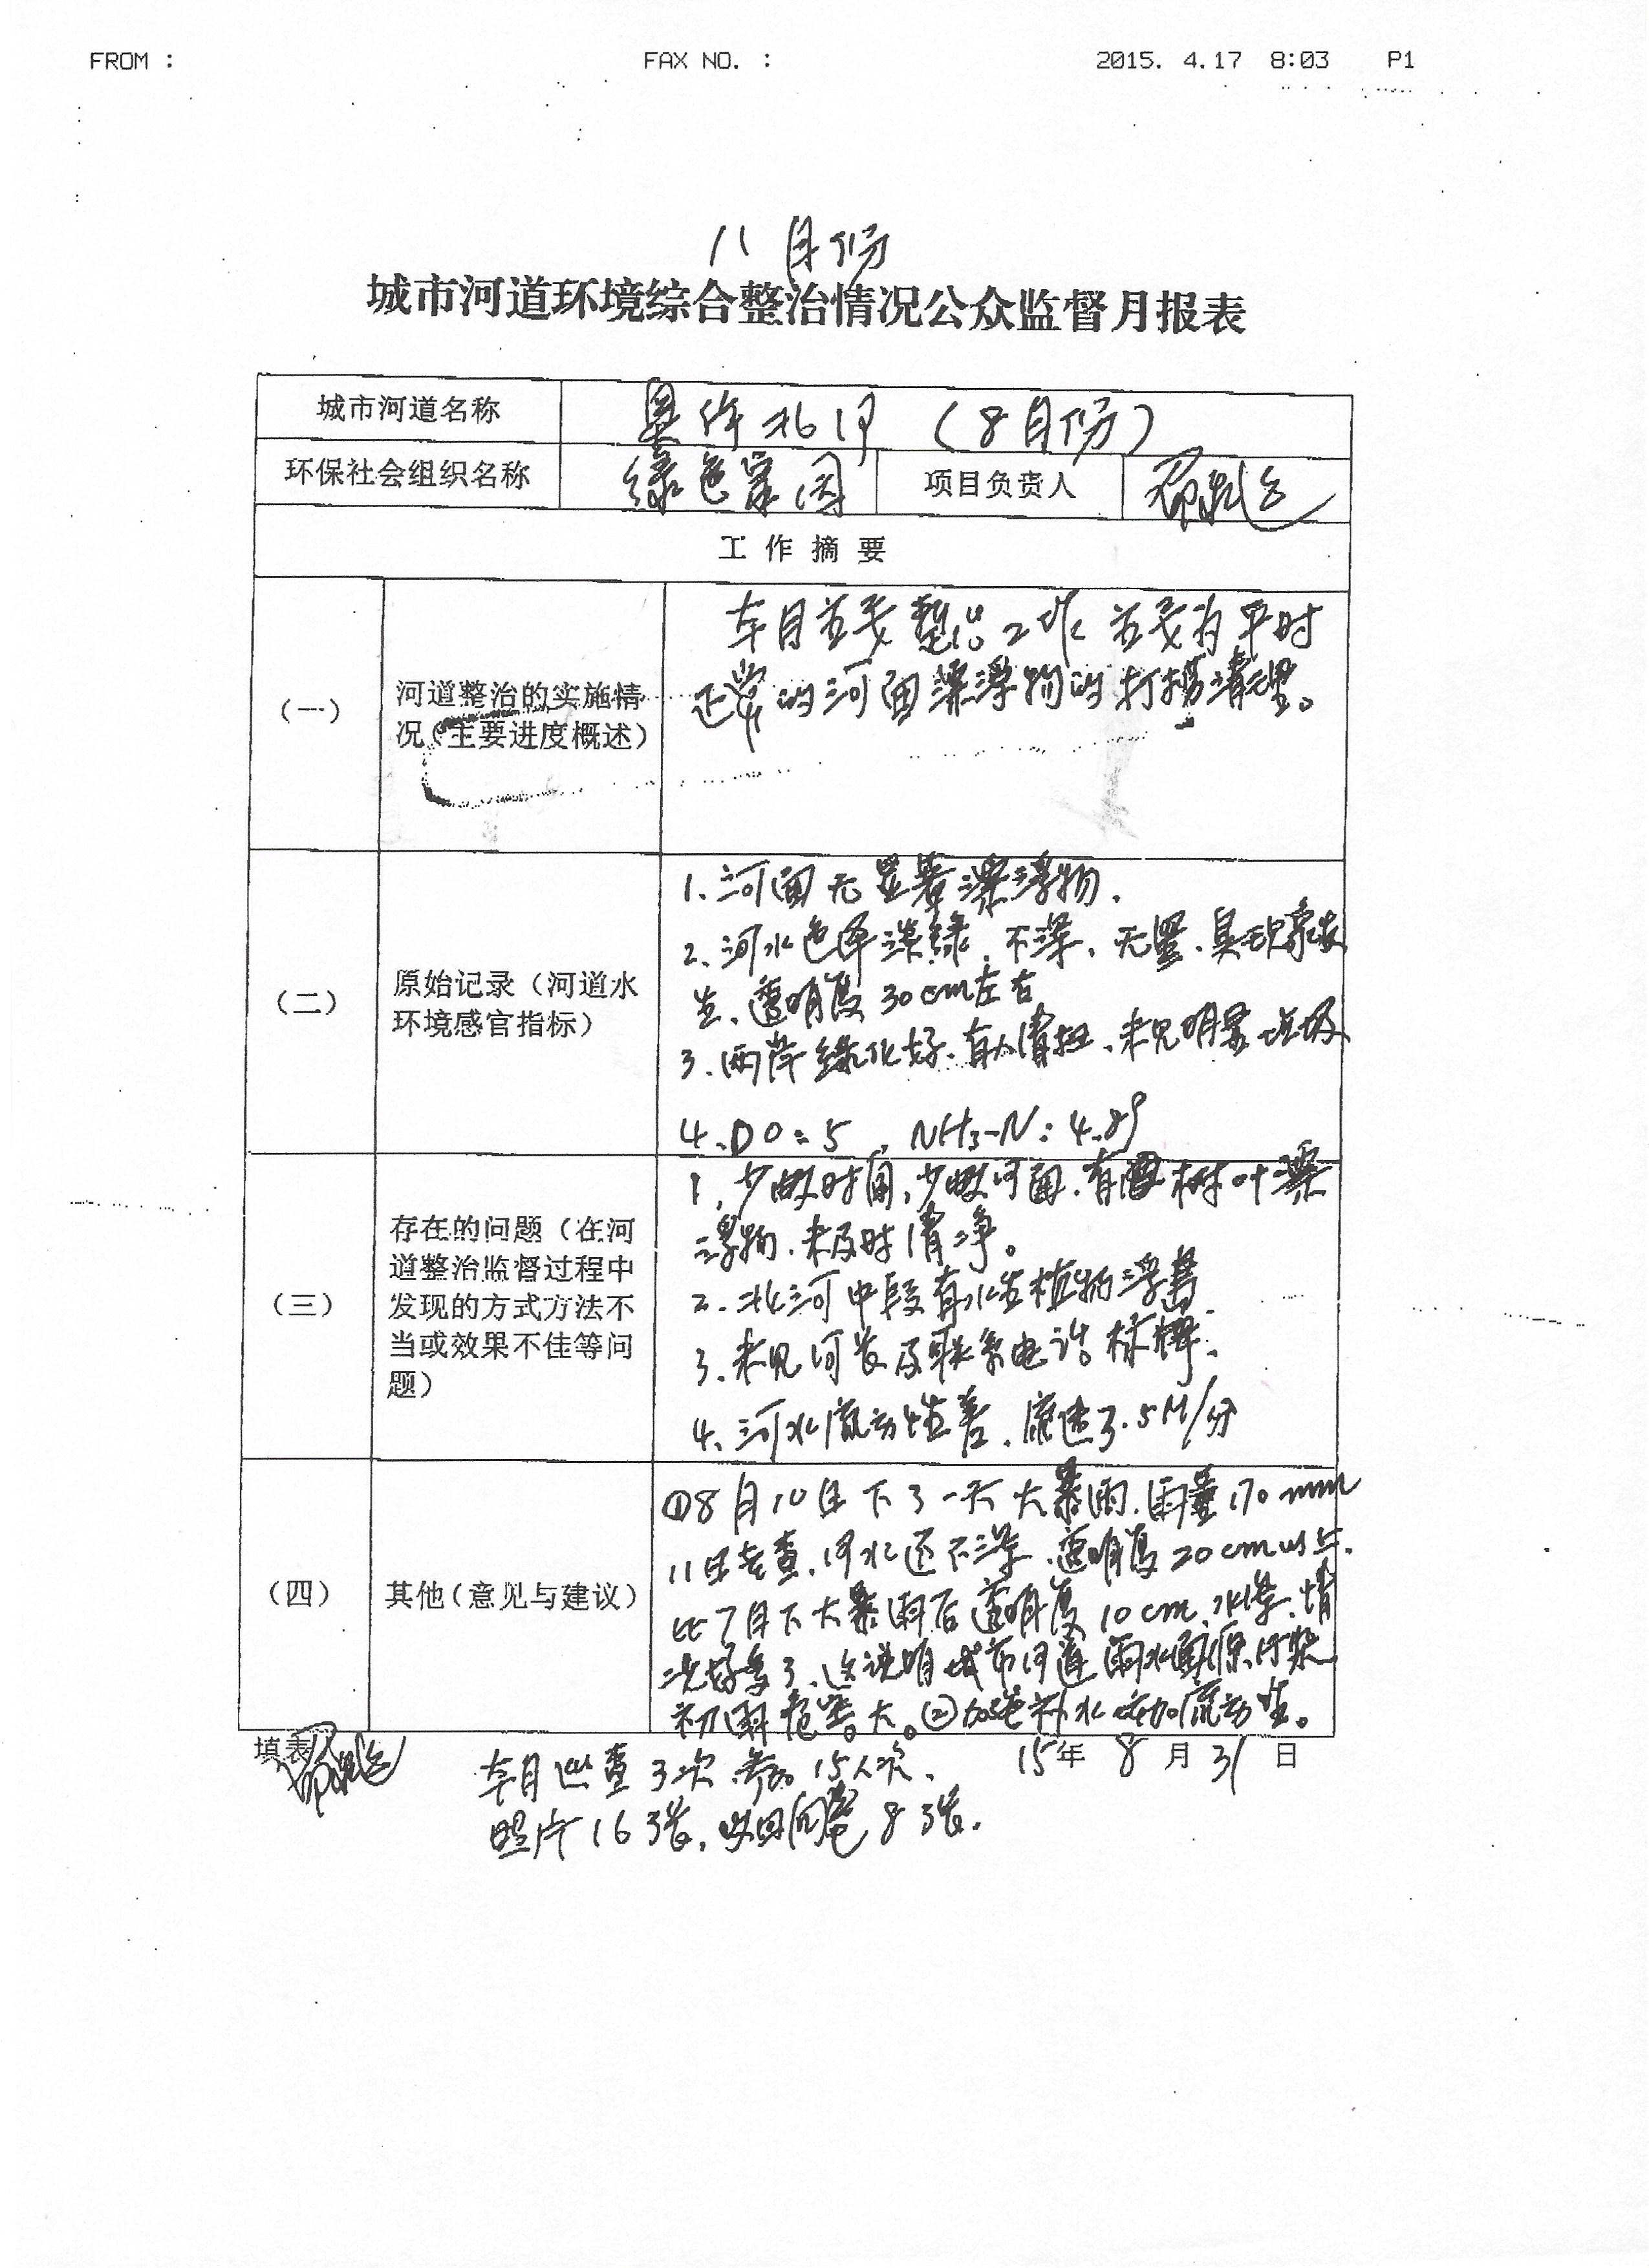 FROM :
FAX NO. :
2015. 4.17 8:03 P1
八月份
城市河道环境综合整治情况公众监督月报表
城市河道名称
北河 (8月份)
环保社会组织名称
绿色家园
项目负责人
工作摘要
(一)
河道整治的实施情
况(主要进度概述)
本月主要整治工作主要为平时
正常的河面漂浮物的打捞清理。
(二)
原始记录(河道水
环境感官指标)
1.河面无显著漂浮物.
2、河水色泽淡绿、不浑、无黑、臭现象发
生、透明度30cm左右
3.两岸绿化好、有人清扫、未见明显垃圾
4、DO:5 , NH3-N: 4.89
(三)
存在的问题(在河
道整治监督过程中
发现的方式方法不
当或效果不佳等问
题)
1、少数时间,少数河面、有 树叶漂
浮物、未及时清净。
2.北河中段有水生植物浮岛
3.未见河长及联系电话标牌.
4、河水流动性差、流速3.5M/分
(四)
其他(意见与建议)
①8月10日下了一天大暴雨.雨量170mm
11日去查、河水还不浑、透明度20cm以上.
比7月下大暴雨后透明度10cm、水浑、情
况好多了、这说明城市河道雨水面源污染
初雨危害大。②加强补水增加流动性。
填表
本月巡查3次 参加15人次、
15年8月31日
照片16张,收回问卷8张.